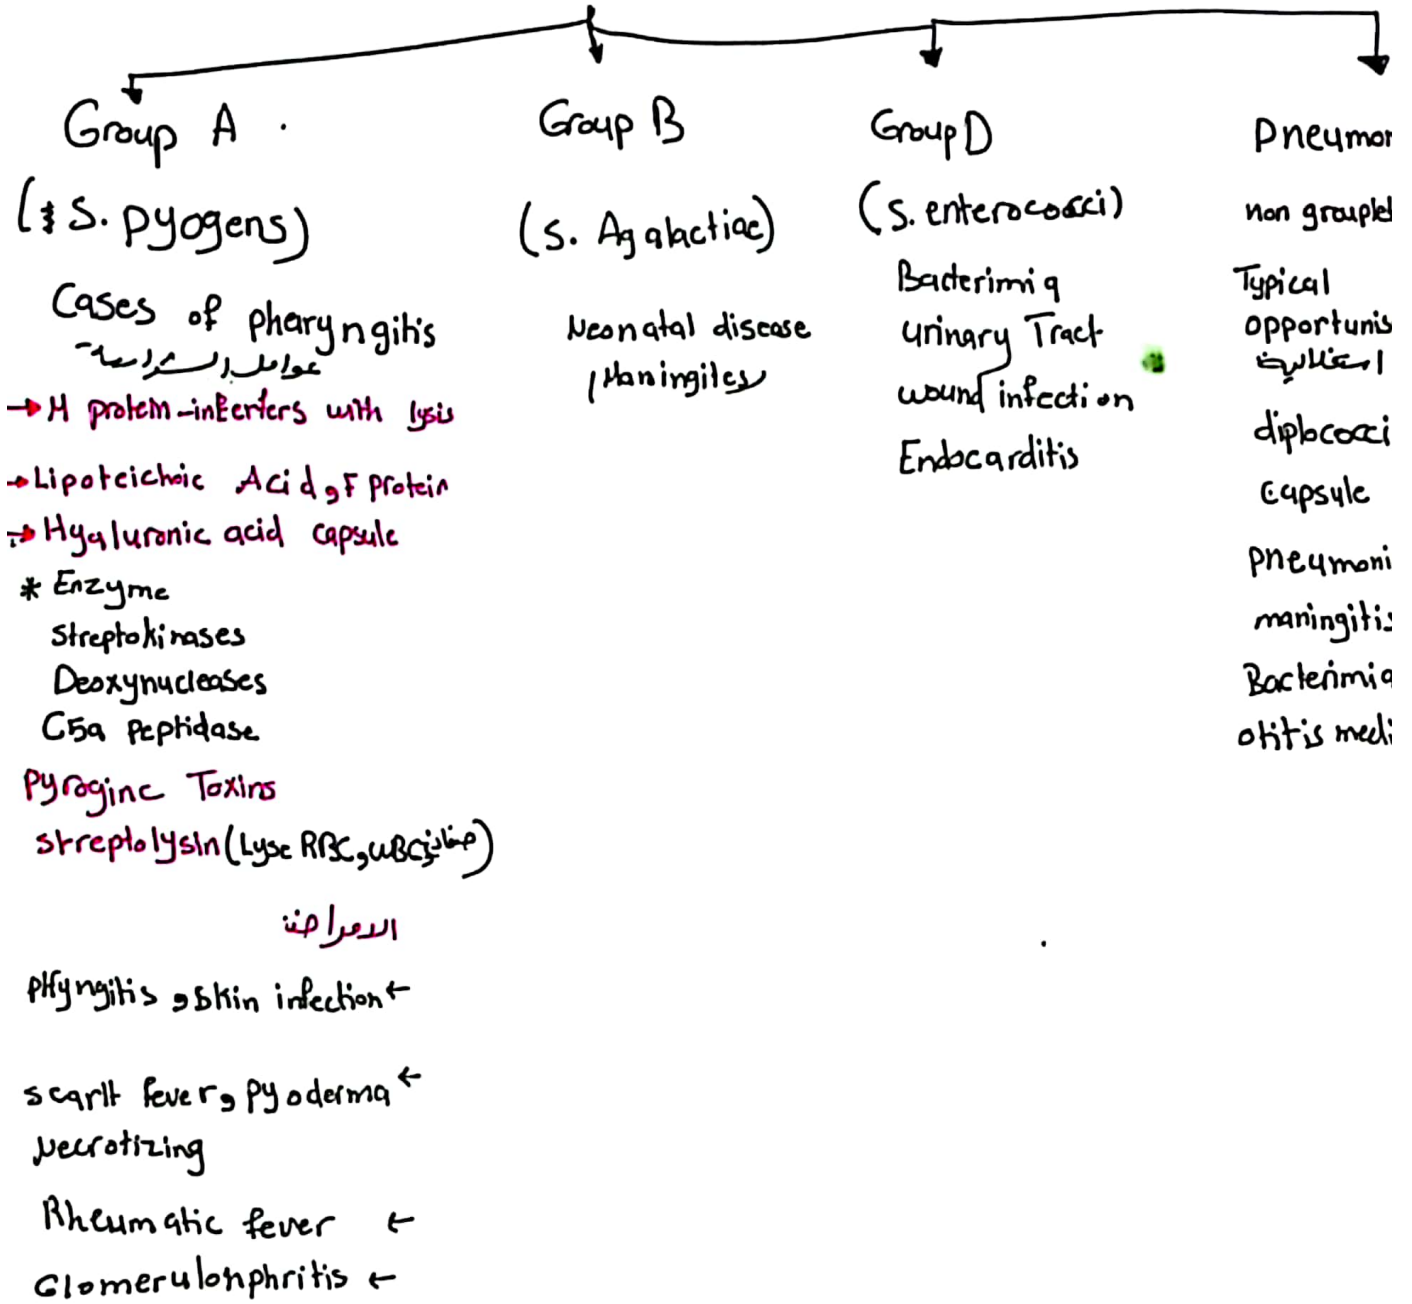 Group A
(S. pyogens)
Cases of pharyngitis
عوامل الشراسة
→ M protein-interfers with lysis
→ Lipoteichoic Acid, F protein
→ Hyaluronic acid capsule
* Enzyme
streptokinases
Deoxynucleases
C5a peptidase
pyroginc Toxins
streptolysin (Lyse RBC, WBC, صفائح)
الامراض
phyngitis, skin infection ←
scarlt fever, pyoderma ←
Necrotizing
Rheumatic fever ←
Glomerulonphritis ←
Group B
(S. Agalactiae)
Neonatal disease
Group D
(S. enterococci)
Bacterimia
urinary Tract
wound infection
Endocarditis
Pneumon
non grouple
Typical
opportunis
استغلالية
diplococci
capsule
pneumoni
maningitis
Bacterimia
otitis medi